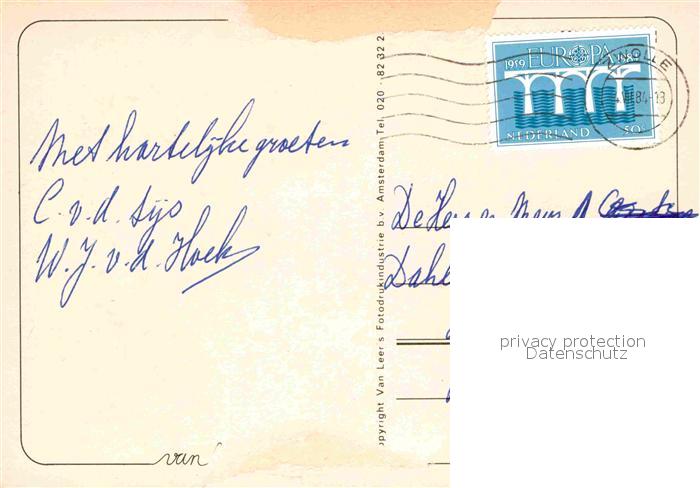 Met hartelijke groeten
C. v. d. Sijs
W. J. v. d. Hoek
van
opyright Van Leer's Fotodrukindustrie b.v. Amsterdam Tel. 020 - 82 32 2
1959 EUROPA 1984
NEDERLAND 50
ZWOLLE
84-13
De Heer en Mevr.
Dahl
privacy protection
Datenschutz